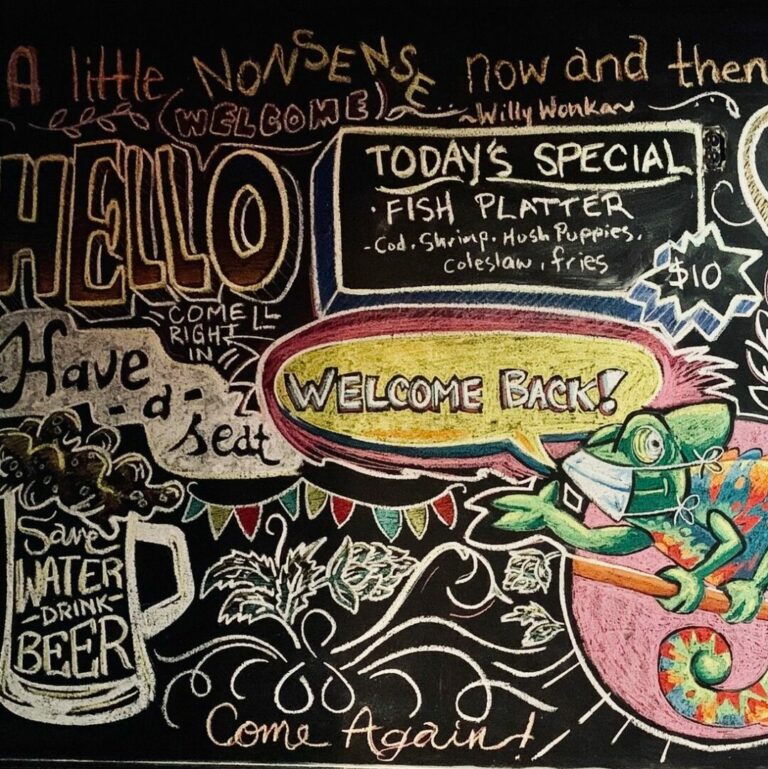 A little NONSENSE now and then
(WELCOME)
~Willy Wonka~
HELLO
TODAY'S SPECIAL
· FISH PLATTER
- Cod, Shrimp, Hush Puppies,
Coleslaw, fries
$10
COME
RIGHT
IN
Have
-a-
seat
WELCOME BACK!
Save
WATER
-DRINK-
BEER
Come Again!